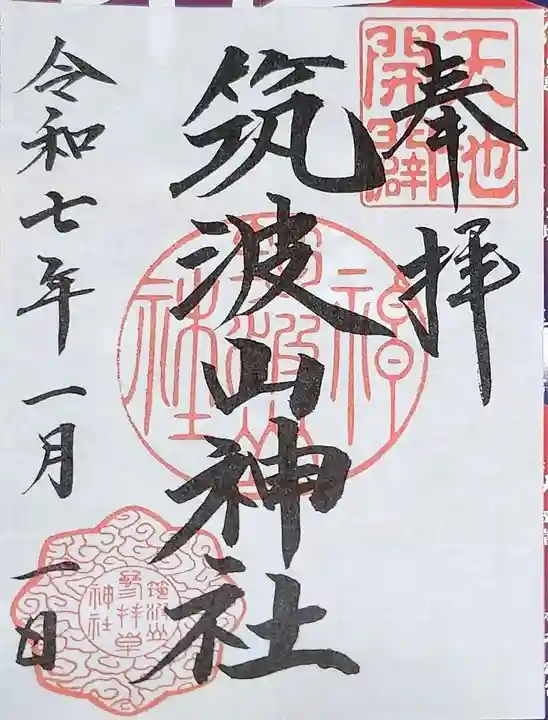 天地
開闢
奉拝
筑波山神社
筑波山
神社
令和七年一月一日
筑波山
参拝章
神社